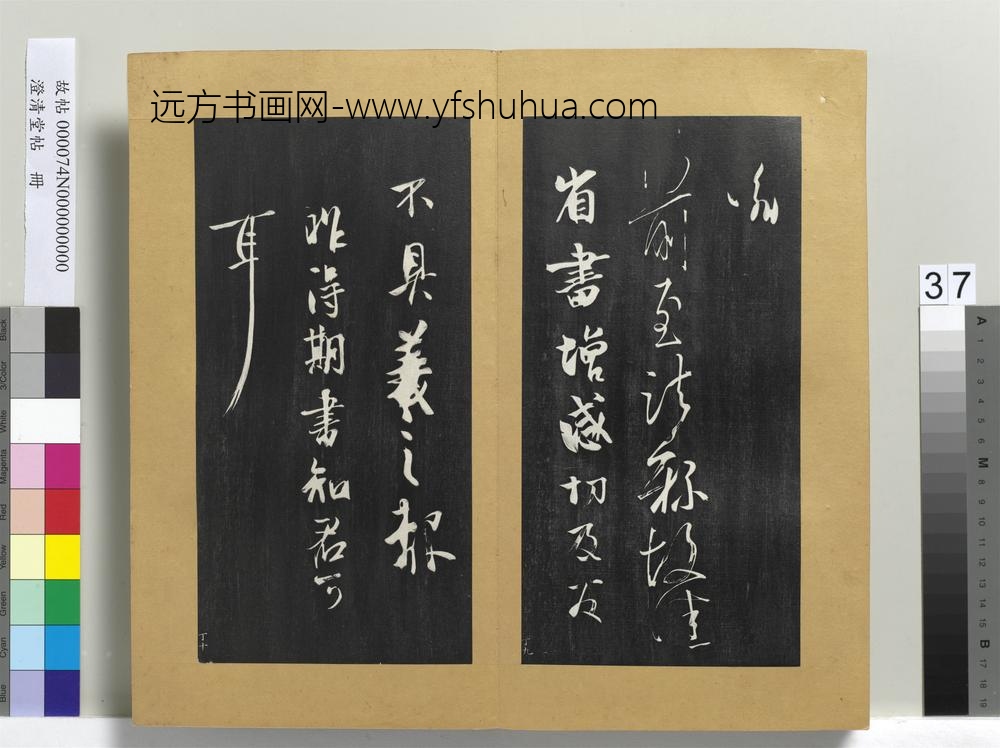 远方书画网-www.yfshuhua.com
故帖 000074N000000000
澄清堂帖 冊
前至
省書增感切
不具羲之報
昨得期書知君可
耳
丁九
丁十
37
Black
3/Color
White
Magenta
Red
Yellow
Green
Cyan
Blue
A
1
2
3
4
5
6
M
8
9
10
11
12
13
14
15
B
17
18
19